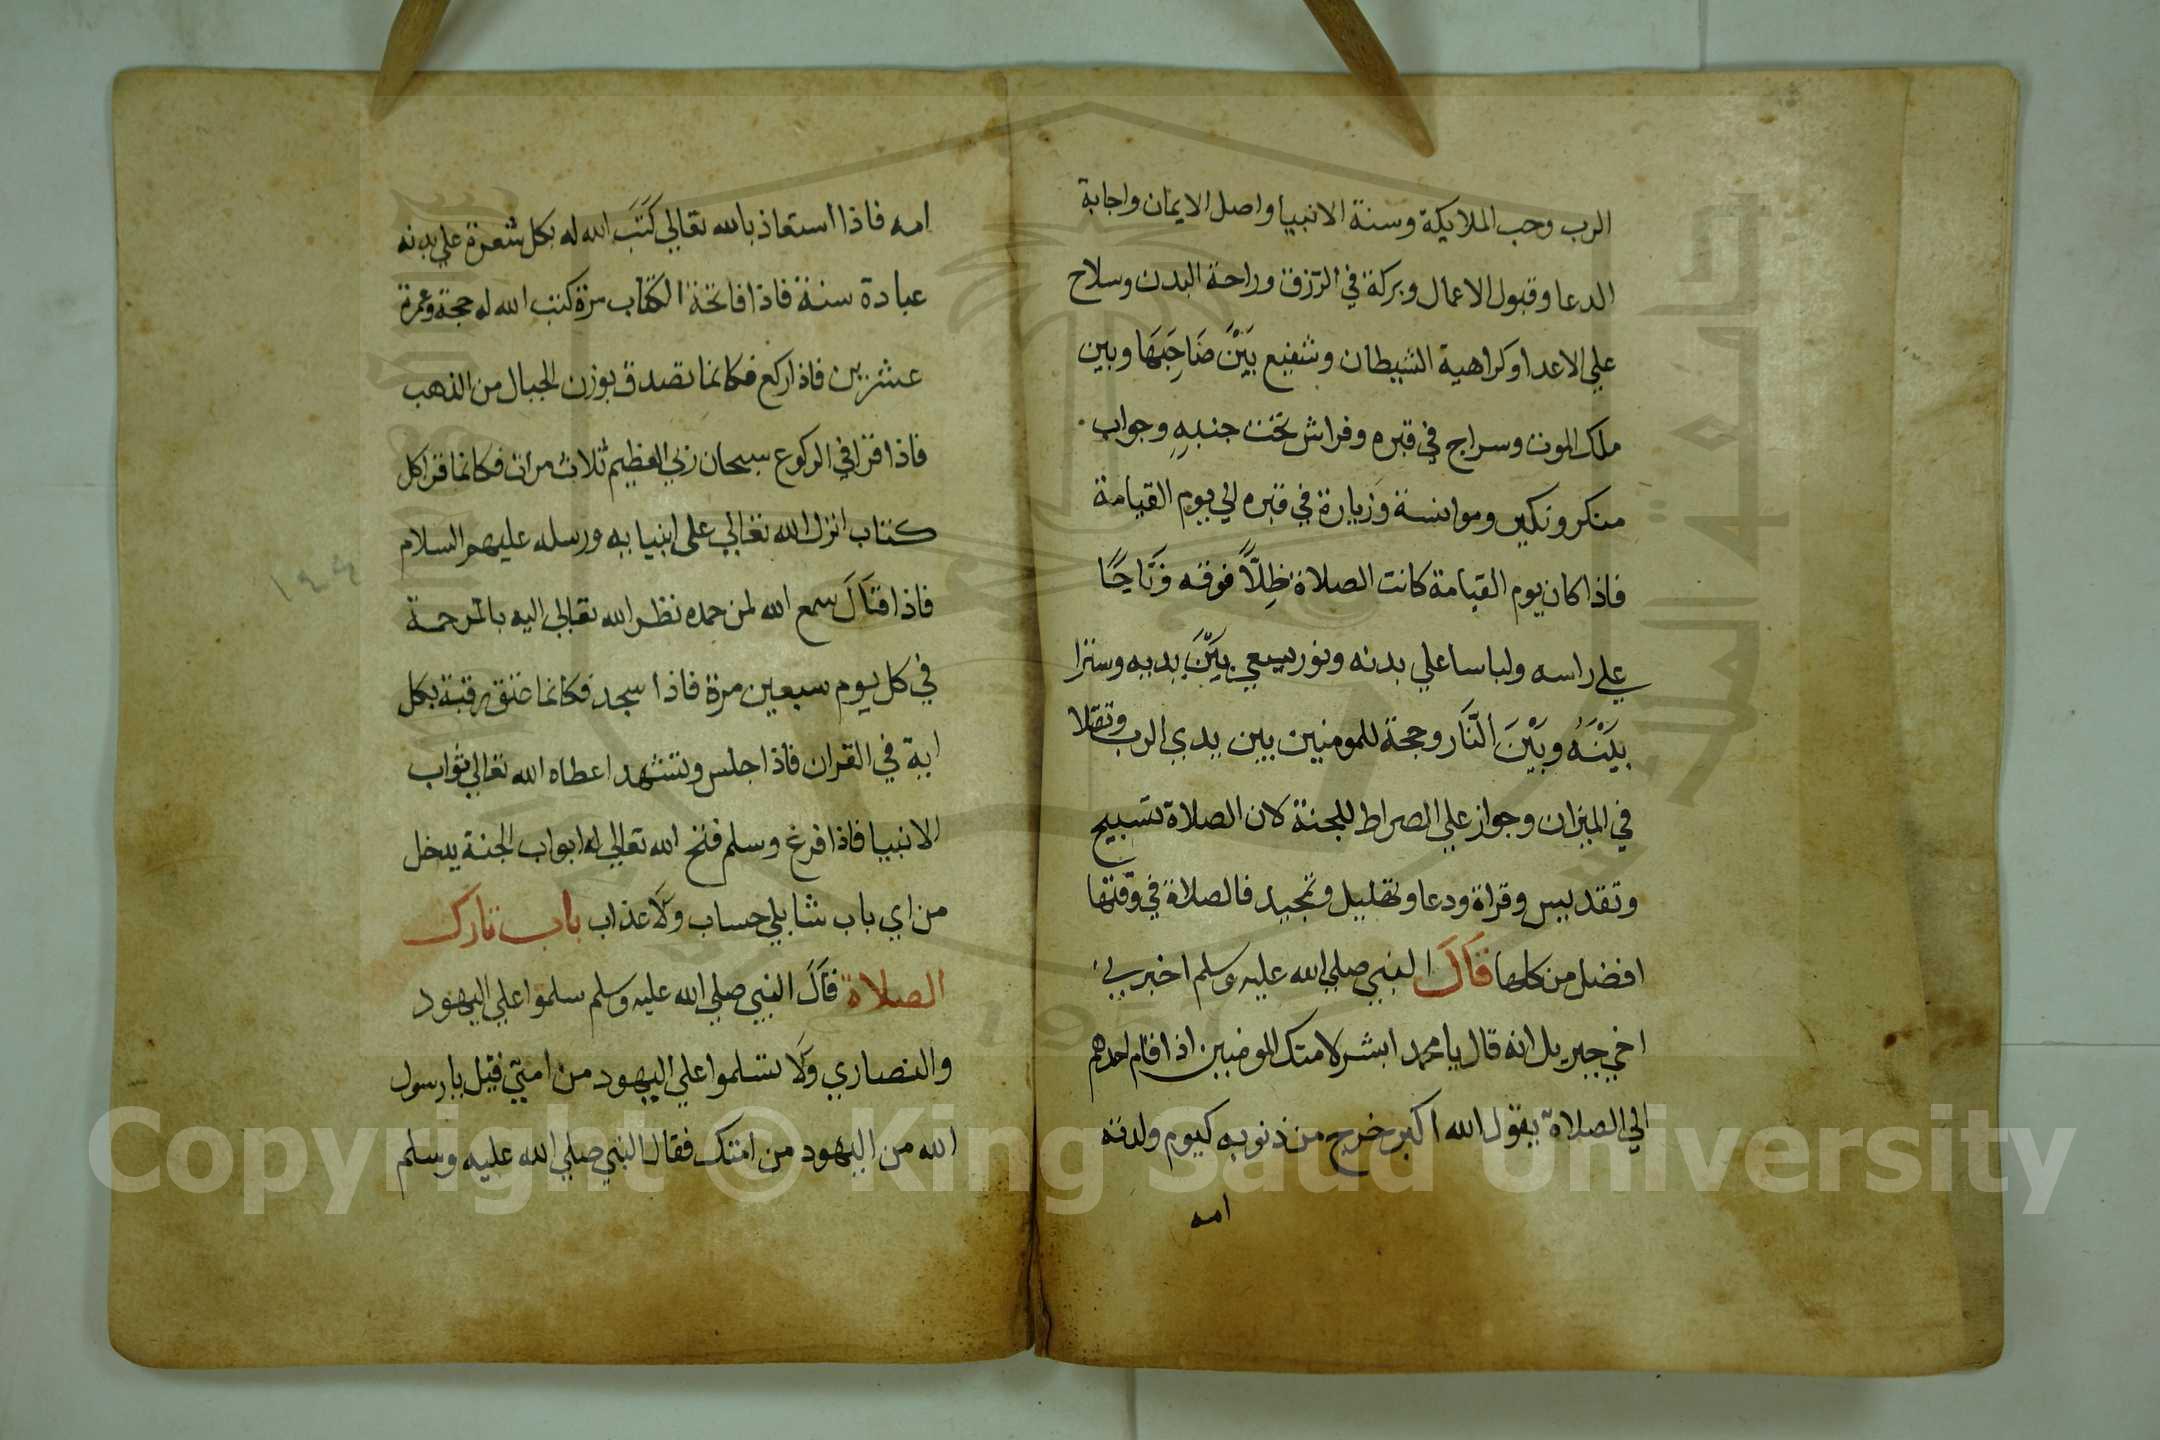 الرب وحب الملايكة وسنة الانبيا واصل الايمان واجابة
الدعا وقبول الاعمال وبركة في الرزق وراحة البدن وسلاح
علي الاعدا وكراهية الشيطان وشفيع بَيْنَ صَاحِبَهَا وبين
ملك الموت وسراج في قبره وفراش تحت جنبهِ وجواب
منكر ونكير وموانسة وزيارة في قبره الي يوم القيامة
فاذا كان يوم القيامة كانت الصلاة ظِلاًّ فوقه وَتَاجًا
علي راسه ولباسا علي بدنه ونور يسعي بَيْنَ يديه وسترا
بَيْنَهُ وبَيْنَ النَّار وحجة للمومنين بين يدي الرب وثقلا
في الميزان وجواز علي الصراط للجنة لان الصلاة تسبيح
وتقديس وقراة ودعا وتهليل وتمجيد فالصلاة في وقتها
افضل من كلها قَالَ النبي صلي الله عليه وسلم اخبرني
اخي جبريل انه قال يا محمد ابشر لامتك المومنين اذا اقام احدهم
الي الصلاة يقول الله اكبر خرج من ذنوبه كيوم ولدته
امه
امه فاذا استعاذ بالله تعالي كَتَبَ الله له بكل شعرة علي بدنه
عبادة سنة فاذا فاتحة الكتاب مرة كتب الله له حجة وعمرة
عشرين فاذا ركع فكانما تصدق بوزن الجبال من الذهب
فاذا اقرا في الركوع سبحان ربي العظيم ثلاث مرات فكانما قرا كل
كتاب انزل الله تعالي علي انبيايه ورسله عليهم السلام
فاذا قَالَ سمع الله لمن حمده نظر الله تعالي اليه بالمرحمة
في كل يوم سبعين مرة فاذا سجد فكانما عتق رقبة بكل
اية في القران فاذا جلس وتشهد اعطاه الله تعالي ثواب
الانبيا فاذا فرغ وسلم فتح الله تعالي له ابواب الجنة يدخل
من اي باب شا بلي حساب وَلَا عذاب باب تارك
الصلاة قَالَ النبي صلي الله عليه وسلم سلموا علي اليهود
والنصاري وَلَا تسلموا علي اليهود من امتي قيل يا رسول
الله من اليهود من امتك فقال النبي صلي الله عليه وسلم
Copyright © King Saud University